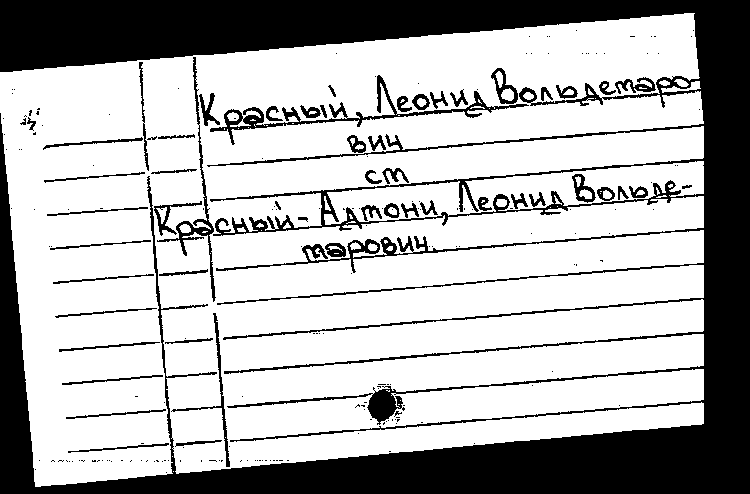 Красный, Леонид Вольдемаро-
вич
см
Красный-Адмони, Леонид Вольде-
марович.